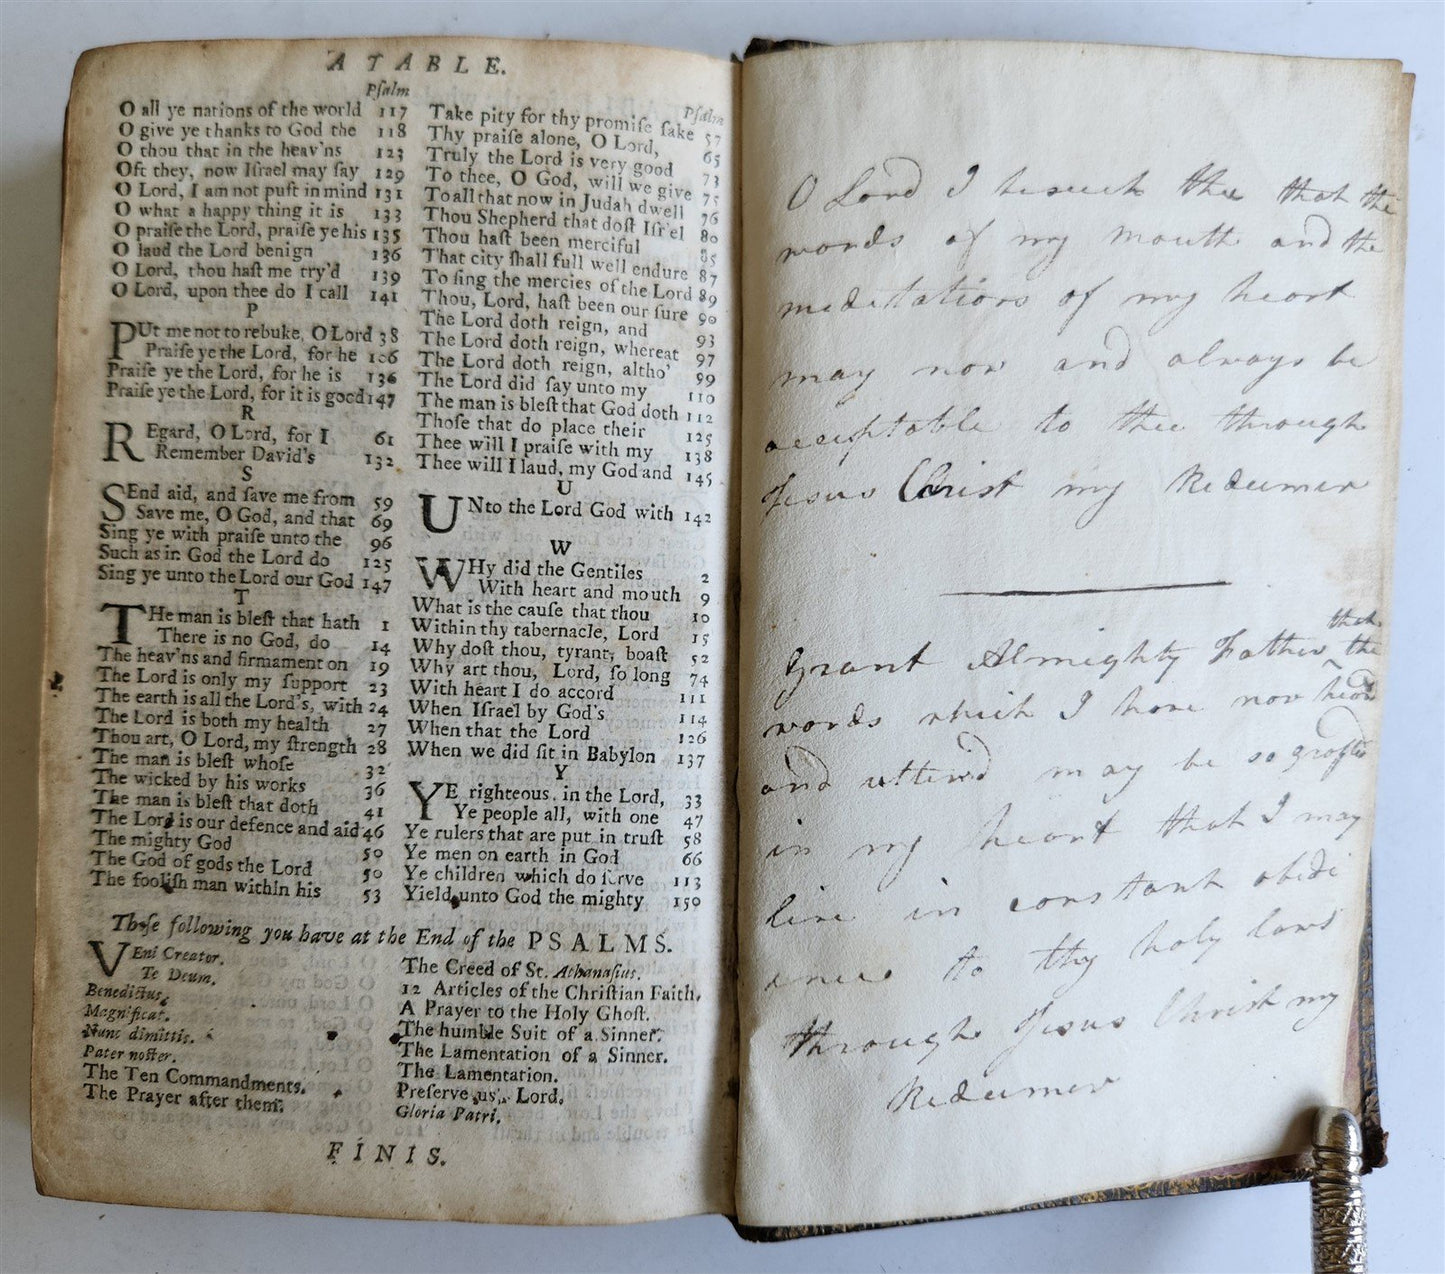 A TABLE.
Pſalm
O all ye nations of the world 117
O give ye thanks to God the 118
O thou that in the heav'ns 123
Oft they, now Iſrael may ſay 129
O Lord, I am not puft in mind 131
O what a happy thing it is 133
O praiſe the Lord, praiſe ye his 135
O laud the Lord benign 136
O Lord, thou haſt me try'd 139
O Lord, upon thee do I call 141
P
PUt me not to rebuke, O Lord 38
Praiſe ye the Lord, for he 106
Praiſe ye the Lord, for he is 136
Praiſe ye the Lord, for it is good 147
R
REgard, O Lord, for I 61
Remember David's 132
S
SEnd aid, and ſave me from 59
Save me, O God, and that 69
Sing ye with praiſe unto the 96
Such as in God the Lord do 125
Sing ye unto the Lord our God 147
T
THe man is bleſt that hath 1
There is no God, do 14
The heav'ns and firmament on 19
The Lord is only my ſupport 23
The earth is all the Lord's, with 24
The Lord is both my health 27
Thou art, O Lord, my ſtrength 28
The man is bleſt whoſe 32
The wicked by his works 36
The man is bleſt that doth 41
The Lord is our defence and aid 46
The mighty God 50
The God of gods the Lord 50
The fooliſh man within his 53
Pſalm
Take pity for thy promiſe ſake 57
Thy praiſe alone, O Lord, 65
Truly the Lord is very good 73
To thee, O God, will we give 75
To all that now in Judah dwell 76
Thou Shepherd that doſt Iſr'el 80
Thou haſt been merciful 85
That city ſhall full well endure 87
To ſing the mercies of the Lord 89
Thou, Lord, haſt been our ſure 90
The Lord doth reign, and 93
The Lord doth reign, whereat 97
The Lord doth reign, altho' 99
The Lord did ſay unto my 110
The man is bleſt that God doth 112
Thoſe that do place their 125
Thee will I praiſe with my 138
Thee will I laud, my God and 145
U
UNto the Lord God with 142
W
WHy did the Gentiles 2
With heart and mouth 9
What is the cauſe that thou 10
Within thy tabernacle, Lord 15
Why doſt thou, tyrant, boaſt 52
Why art thou, Lord, ſo long 74
With heart I do accord 111
When Iſrael by God's 114
When that the Lord 126
When we did ſit in Babylon 137
Y
YE righteous, in the Lord, 33
Ye people all, with one 47
Ye rulers that are put in truſt 58
Ye men on earth in God 66
Ye children which do ſerve 113
Yield unto God the mighty 150
Theſe following you have at the End of the PSALMS.
VEni Creator.
Te Deum.
Benedictus,
Magnificat.
Nunc dimittis.
Pater noſter.
The Ten Commandments.
The Prayer after them.
The Creed of St. Athanaſius.
12 Articles of the Chriſtian Faith.
A Prayer to the Holy Ghoſt.
The humble Suit of a Sinner.
The Lamentation of a Sinner.
The Lamentation.
Preſerve us, Lord.
Gloria Patri.
FINIS.
O Lord I beseech thee that the
words of my mouth and the
meditations of my heart
may now and always be
acceptable to thee through
Jesus Christ my Redeemer
Grant Almighty Father that the
words which I have now heard
and utter'd may be so grafted
in my heart that I may
live in constant obedi
ence to thy holy laws
through Jesus Christ my
Redeemer